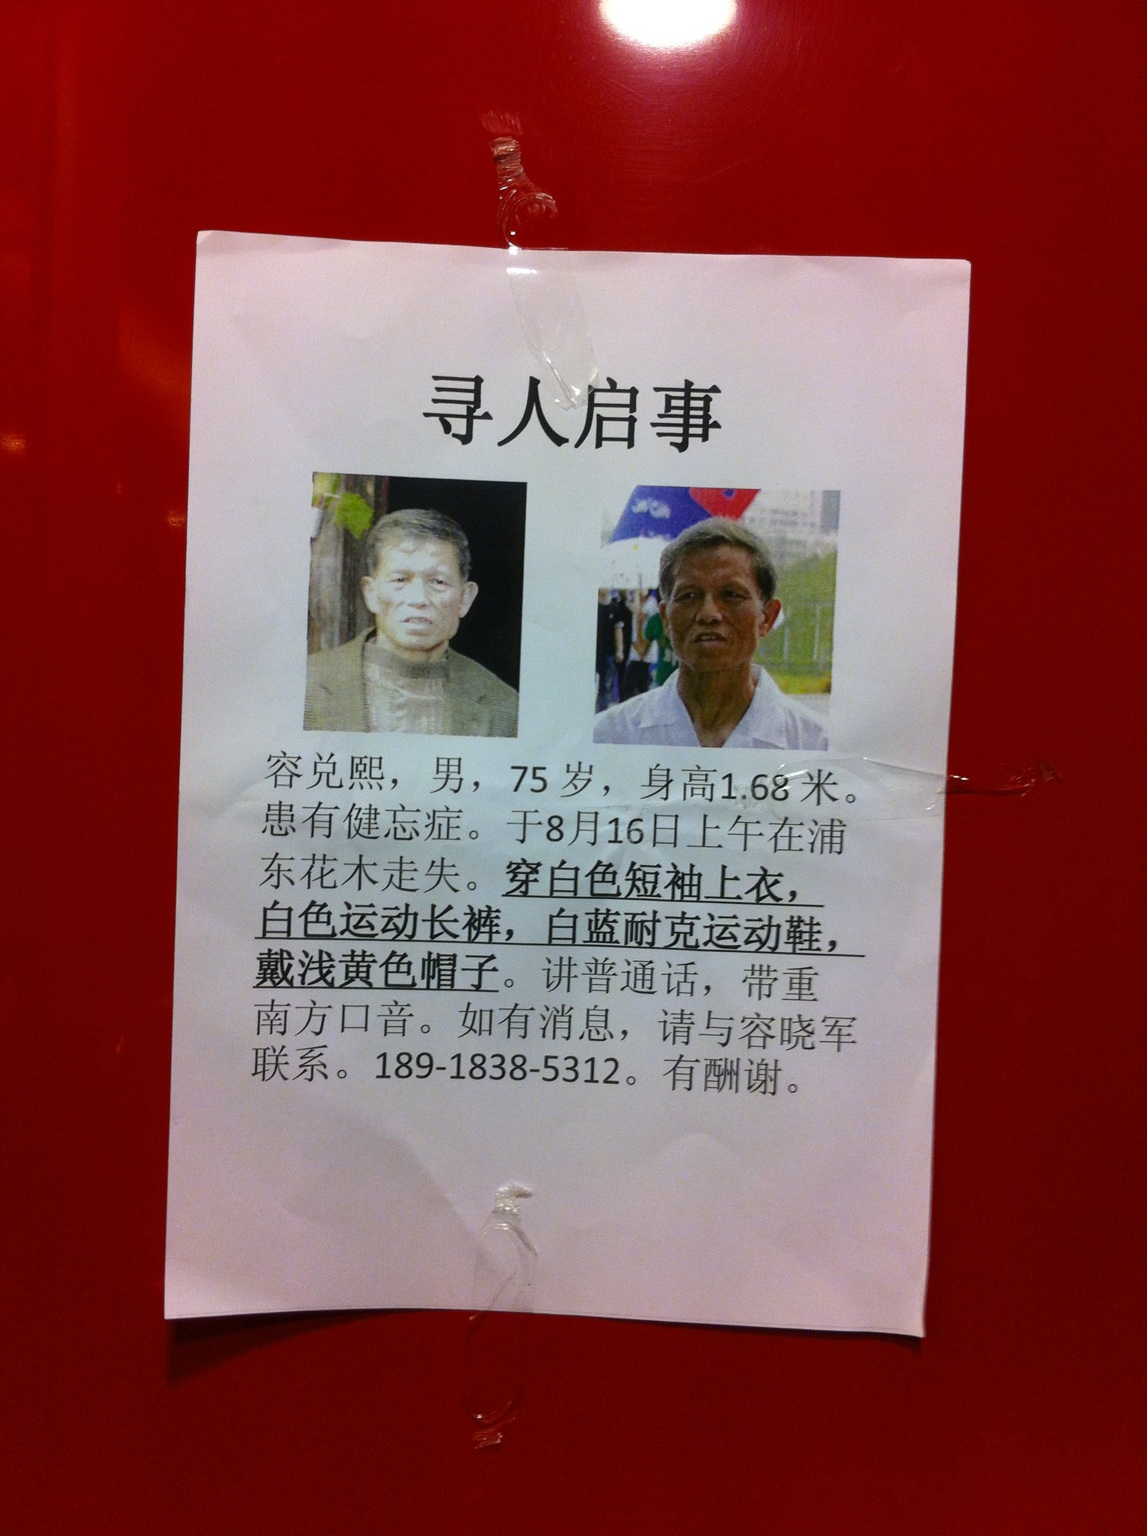 寻人启事
容兑熙，男，75岁，身高1.68米。
患有健忘症。于8月16日上午在浦
东花木走失。穿白色短袖上衣，
白色运动长裤，白蓝耐克运动鞋，
戴浅黄色帽子。讲普通话，带重
南方口音。如有消息，请与容晓军
联系。189-1838-5312。有酬谢。